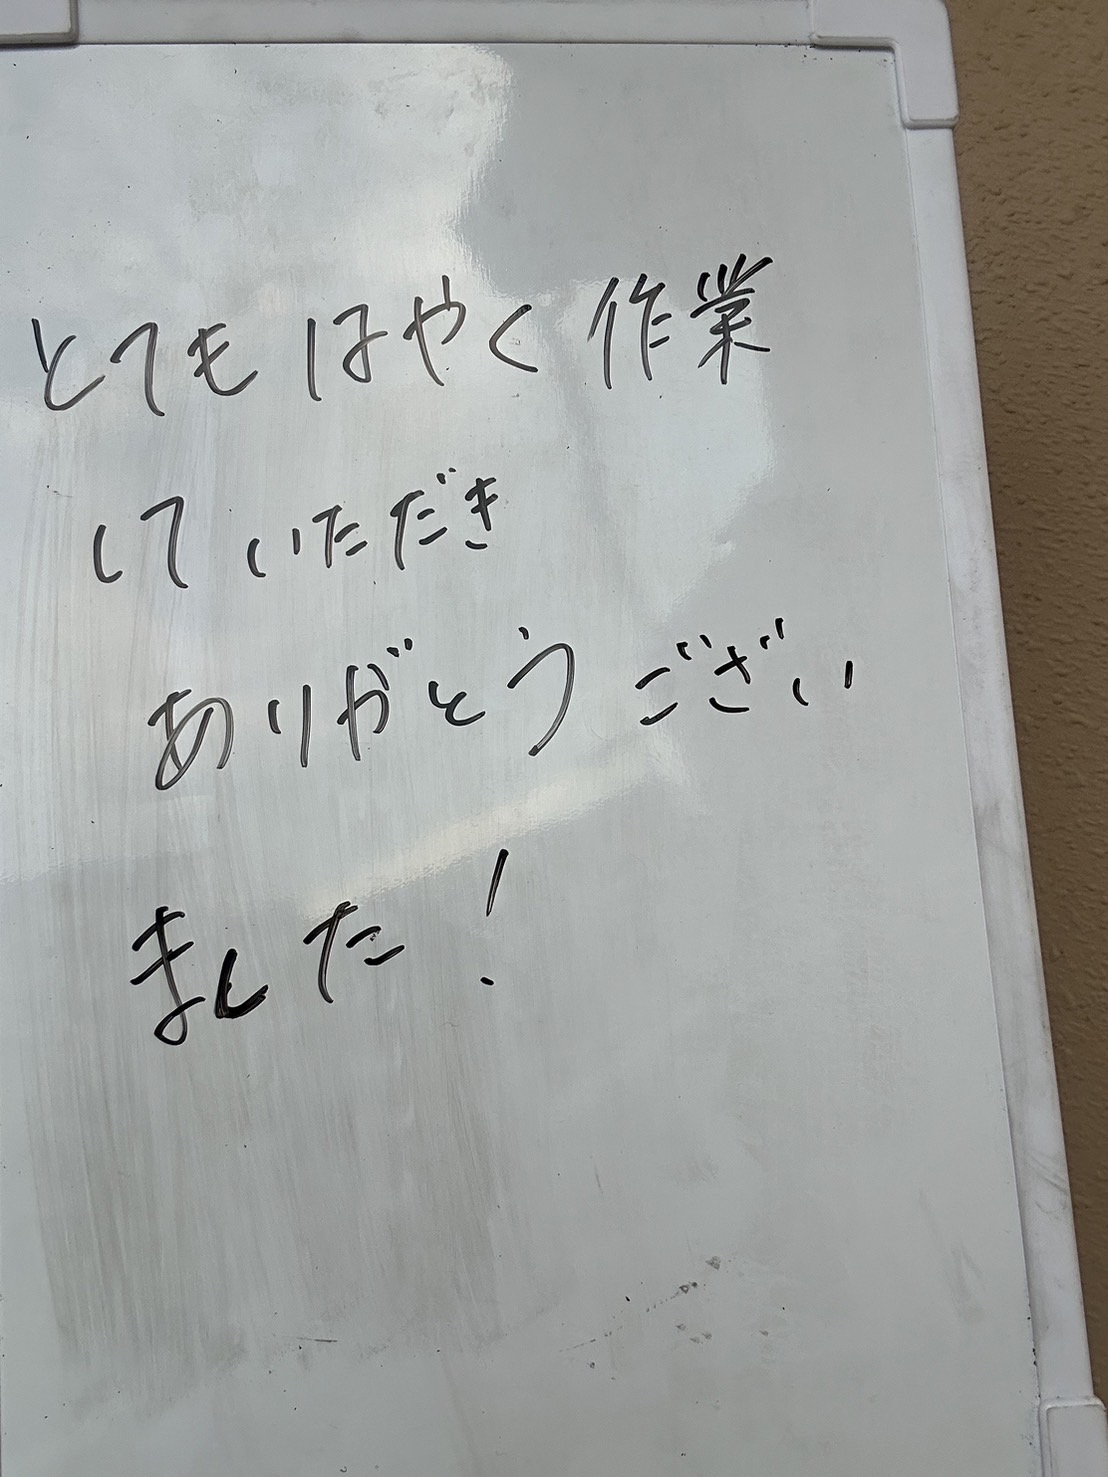 とてもはやく作業
していただき
ありがとうござい
ました！